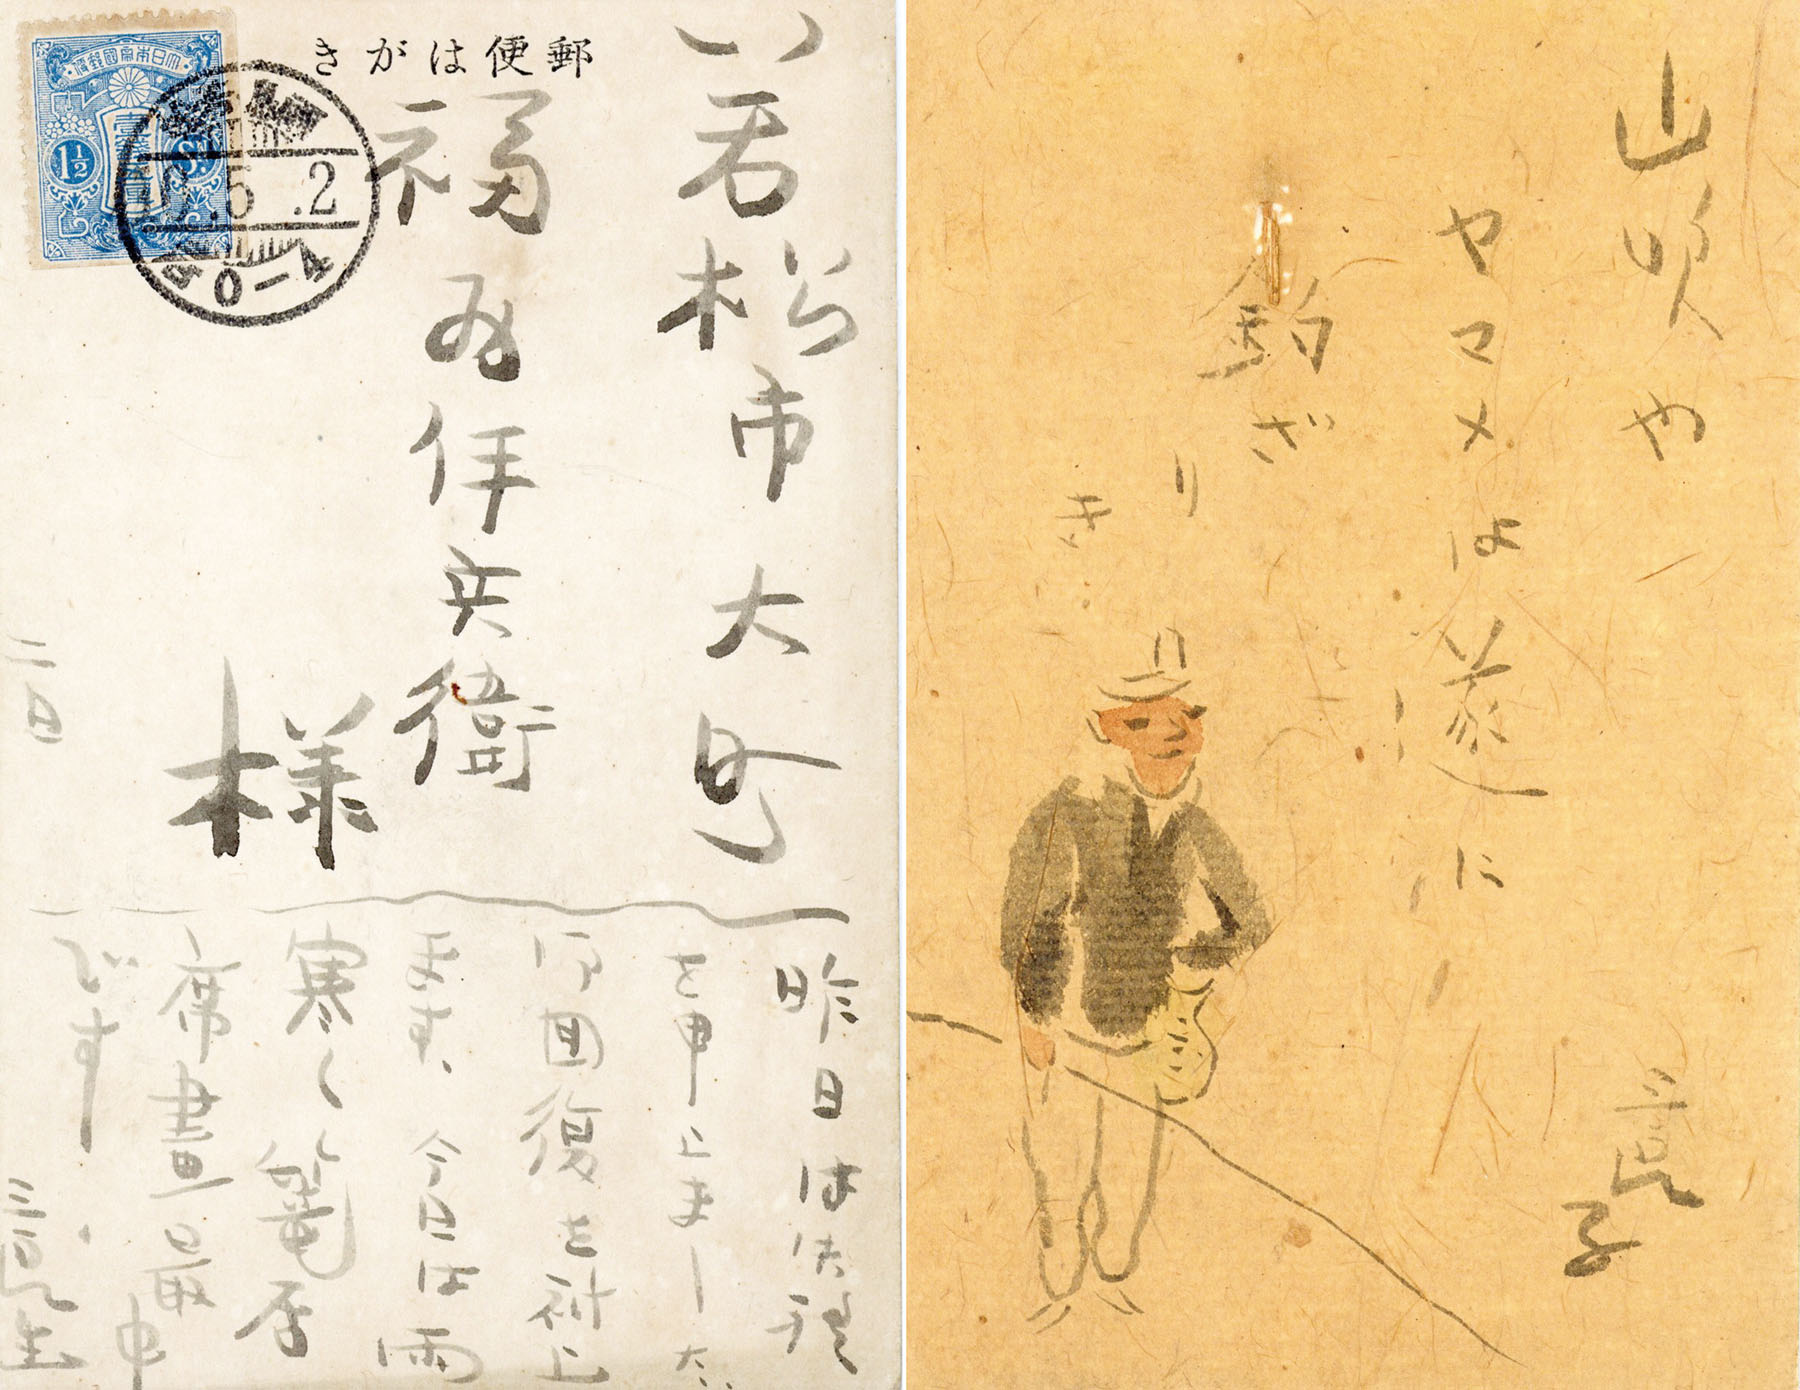 郵便はがき
大日本帝國郵便
1½
.5.2
若松市大町
福西伊兵衛
様
昨日は失礼
を申上ました
御回復を祈上
ます、今日は雨
寒く篭居
席畫最中
です。
二日
三良生
山吹や
ヤマメは遂に
釣ざ
り
き
三良子